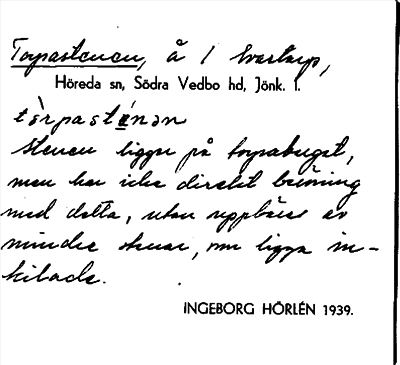 Torpastenen, å 1 Svartarp,
Höreda sn, Södra Vedbo hd, Jönk. l.
tòrpasténən
Stenen ligger på torpaberget,
men har icke direkt beröring
med detta, utan uppbäres av
mindre stenar, som ligga in-
kilade.
INGEBORG HÖRLÉN 1939.